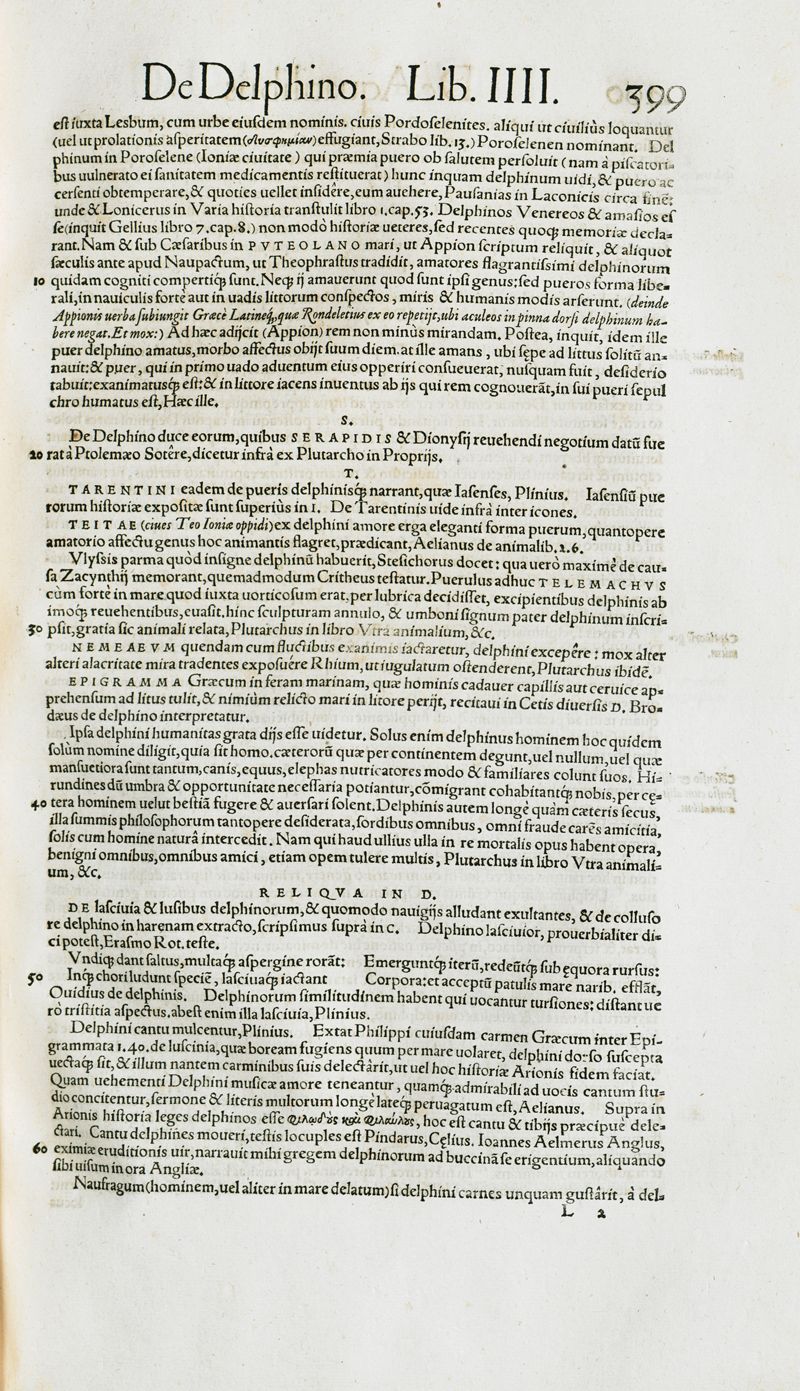 De Delphino. Lib. IIII. 399
est iuxta Lesbum, cum urbe eiusdem nominis. ciuis Pordoselenites. aliqui ut ciuiliùs loquantur
(uel ut prolationis asperitatem (δυσφημίαν) effugiant, Strabo lib. 13.) Poroselenen nominant. Del
phinum in Poroselene (Ioniæ ciuitate) qui præmia puero ob salutem persoluit (nam à piscatori-
bus uulnerato ei sanitatem medicamentis restituerat) hunc inquam delphinum uidi, & puero ac
cersenti obtemperare, & quoties uellet insidêre, eum auehere, Pausanias in Laconicis circa finē:
unde & Lonicerus in Varia historia transtulit libro 1. cap. 53. Delphinos Venereos & amasios es
se (inquit Gellius libro 7. cap. 8.) non modò historiæ ueteres, sed recentes quoq; memoriæ decla-
rant. Nam & sub Cæsaribus in PVTEOLANO mari, ut Appion scriptum reliquit, & aliquot
sæculis ante apud Naupactum, ut Theophrastus tradidit, amatores flagrantissimi delphinorum
10 quidam cogniti compertiq; sunt. Neq; ij amauerunt quod sunt ipsi genus: sed pueros forma libe-
rali, in nauiculis fortè aut in uadis littorum conspectos, miris & humanis modis arserunt. (deinde
Appionis uerba subiungit Græcè Latineq;, quæ Rondeletius ex eo repetijt, ubi aculeos in pinna dorsi delphinum ha-
bere negat. Et mox:) Ad hæc adijcit (Appion) rem non minùs mirandam. Postea, inquit, idem ille
puer delphino amatus, morbo affectus obijt suum diem. at ille amans, ubi sępe ad littus solitū an-
nauit: & puer, qui in primo uado aduentum eius opperiri consueuerat, nusquam fuit, desiderio
tabuit: exanimatusq; est: & in littore iacens inuentus ab ijs qui rem cognouerāt, in sui pueri sepul
chro humatus est, Hæc ille.
S.
De Delphino duce eorum, quibus SERAPIDIS & Dionysij reuehendi negotium datū fue
20 rat à Ptolemæo Sotêre, dicetur infrà ex Plutarcho in Proprijs.
T.
TARENTINI eadem de pueris delphinisq; narrant, quæ Iasenses, Plinius. Iasensiū pue
rorum historiæ expositæ sunt superiùs in I. De Tarentinis uide infrà inter icones.
TEITAE (ciues Teo Ioniæ oppidi) ex delphini amore erga eleganti forma puerum, quantopere
amatorio affectu genus hoc animantis flagret, prædicant, Aelianus de animalib. 2. 6.
Vlyssis parma quòd insigne delphinū habuerit, Stesichorus docet: qua uerò maximè de cau-
sa Zacynthij memorant, quemadmodum Critheus testatur. Puerulus adhuc TELEMACHVS
cùm fortè in mare, quod iuxta uorticosum erat, per lubrica decidisset, excipientibus delphinis ab
imoq; reuehentibus, euasit. hinc sculpturam annulo, & umboni signum pater delphinum inscri-
30 psit, gratia sic animali relata, Plutarchus in libro Vtra animalium, &c.
NEMEAEVM quendam cum fluctibus exanimis iactaretur, delphini excepêre: mox alter
alteri alacritate mira tradentes exposuêre Rhium, ut iugulatum ostenderent, Plutarchus ibidē.
EPIGRAMMA Græcum in feram marinam, quæ hominis cadauer capillis aut ceruice ap-
prehensum ad litus tulit, & nimiùm relicto mari in litore perijt, recitaui in Cetis diuersis D. Bro-
dæus de delphino interpretatur.
Ipsa delphini humanitas grata dijs esse uidetur. Solus enim delphinus hominem hoc quidem
solùm nomine diligit, quia sit homo. cæterorū quæ per continentem degunt, uel nullum, uel quæ
mansuetiora sunt tantum, canis, equus, elephas nutricatores modo & familiares colunt suos. Hi-
rundines dū umbra & opportunitate necessaria potiantur, cōmigrant cohabitantq; nobis, per ce-
40 tera hominem uelut bestiā fugere & auersari solent. Delphinis autem longè quàm cæteris secus,
illa summis philosophorum tantopere desiderata, sordibus omnibus, omni fraude carēs amicitia,
solis cum homine naturâ intercedit. Nam qui haud ullius ulla in re mortalis opus habent opera,
benigni omnibus, omnibus amici, etiam opem tulere multis, Plutarchus in libro Vtra animali-
um, &c.
RELIQVA IN D.
DE lasciuia & lusibus delphinorum, & quomodo nauigijs alludant exultantes, & de colluso
re delphino in harenam extracto, scripsimus suprà in C. Delphino lasciuior, prouerbialiter di-
ci potest, Erasmo Rot. teste.
Vndiq; dant saltus, multaq; aspergine rorāt: Emerguntq; iterū, redeūtq; sub equora rursus:
50 Inq; chori ludunt speciē, lasciuaq; iactant Corpora: et acceptū patulis mare narib. efflāt,
Ouidius de delphinis. Delphinorum similitudinem habent qui uocantur tursiones: distant ue
rò tristitia aspectus. abest enim illa lasciuia, Plinius.
Delphini cantu mulcentur, Plinius. Extat Philippi cuiusdam carmen Græcum inter Epi-
grammata 1. 40. de luscinia, quæ boream fugiens quum per mare uolaret, delphini dorso suscepta
uectaq; sit, & illum nantem carminibus suis delectârit, ut uel hoc historiæ Arionis fidem faciat.
Quam uehementi Delphini musicæ amore teneantur, quamq; admirabili ad uocis cantum stu-
dio concitentur, sermone & literis multorum longè lateq; peruagatum est, Aelianus. Supra in
Arionis historia leges delphinos esse φιλῳδοὺς καὶ φιλαύλους, hoc est cantu & tibijs præcipuè dele-
ctari. Cantu delphines moueri, testis locuples est Pindarus, Cęlius. Ioannes Aelmerus Anglus,
60 eximiæ eruditionis uir, narrauit mihi gregem delphinorum ad buccinā se erigentium, aliquando
sibi uisum in ora Angliæ.
Naufragum (hominem, uel aliter in mare delatum) si delphini carnes unquam gustârit, à del-
L 2